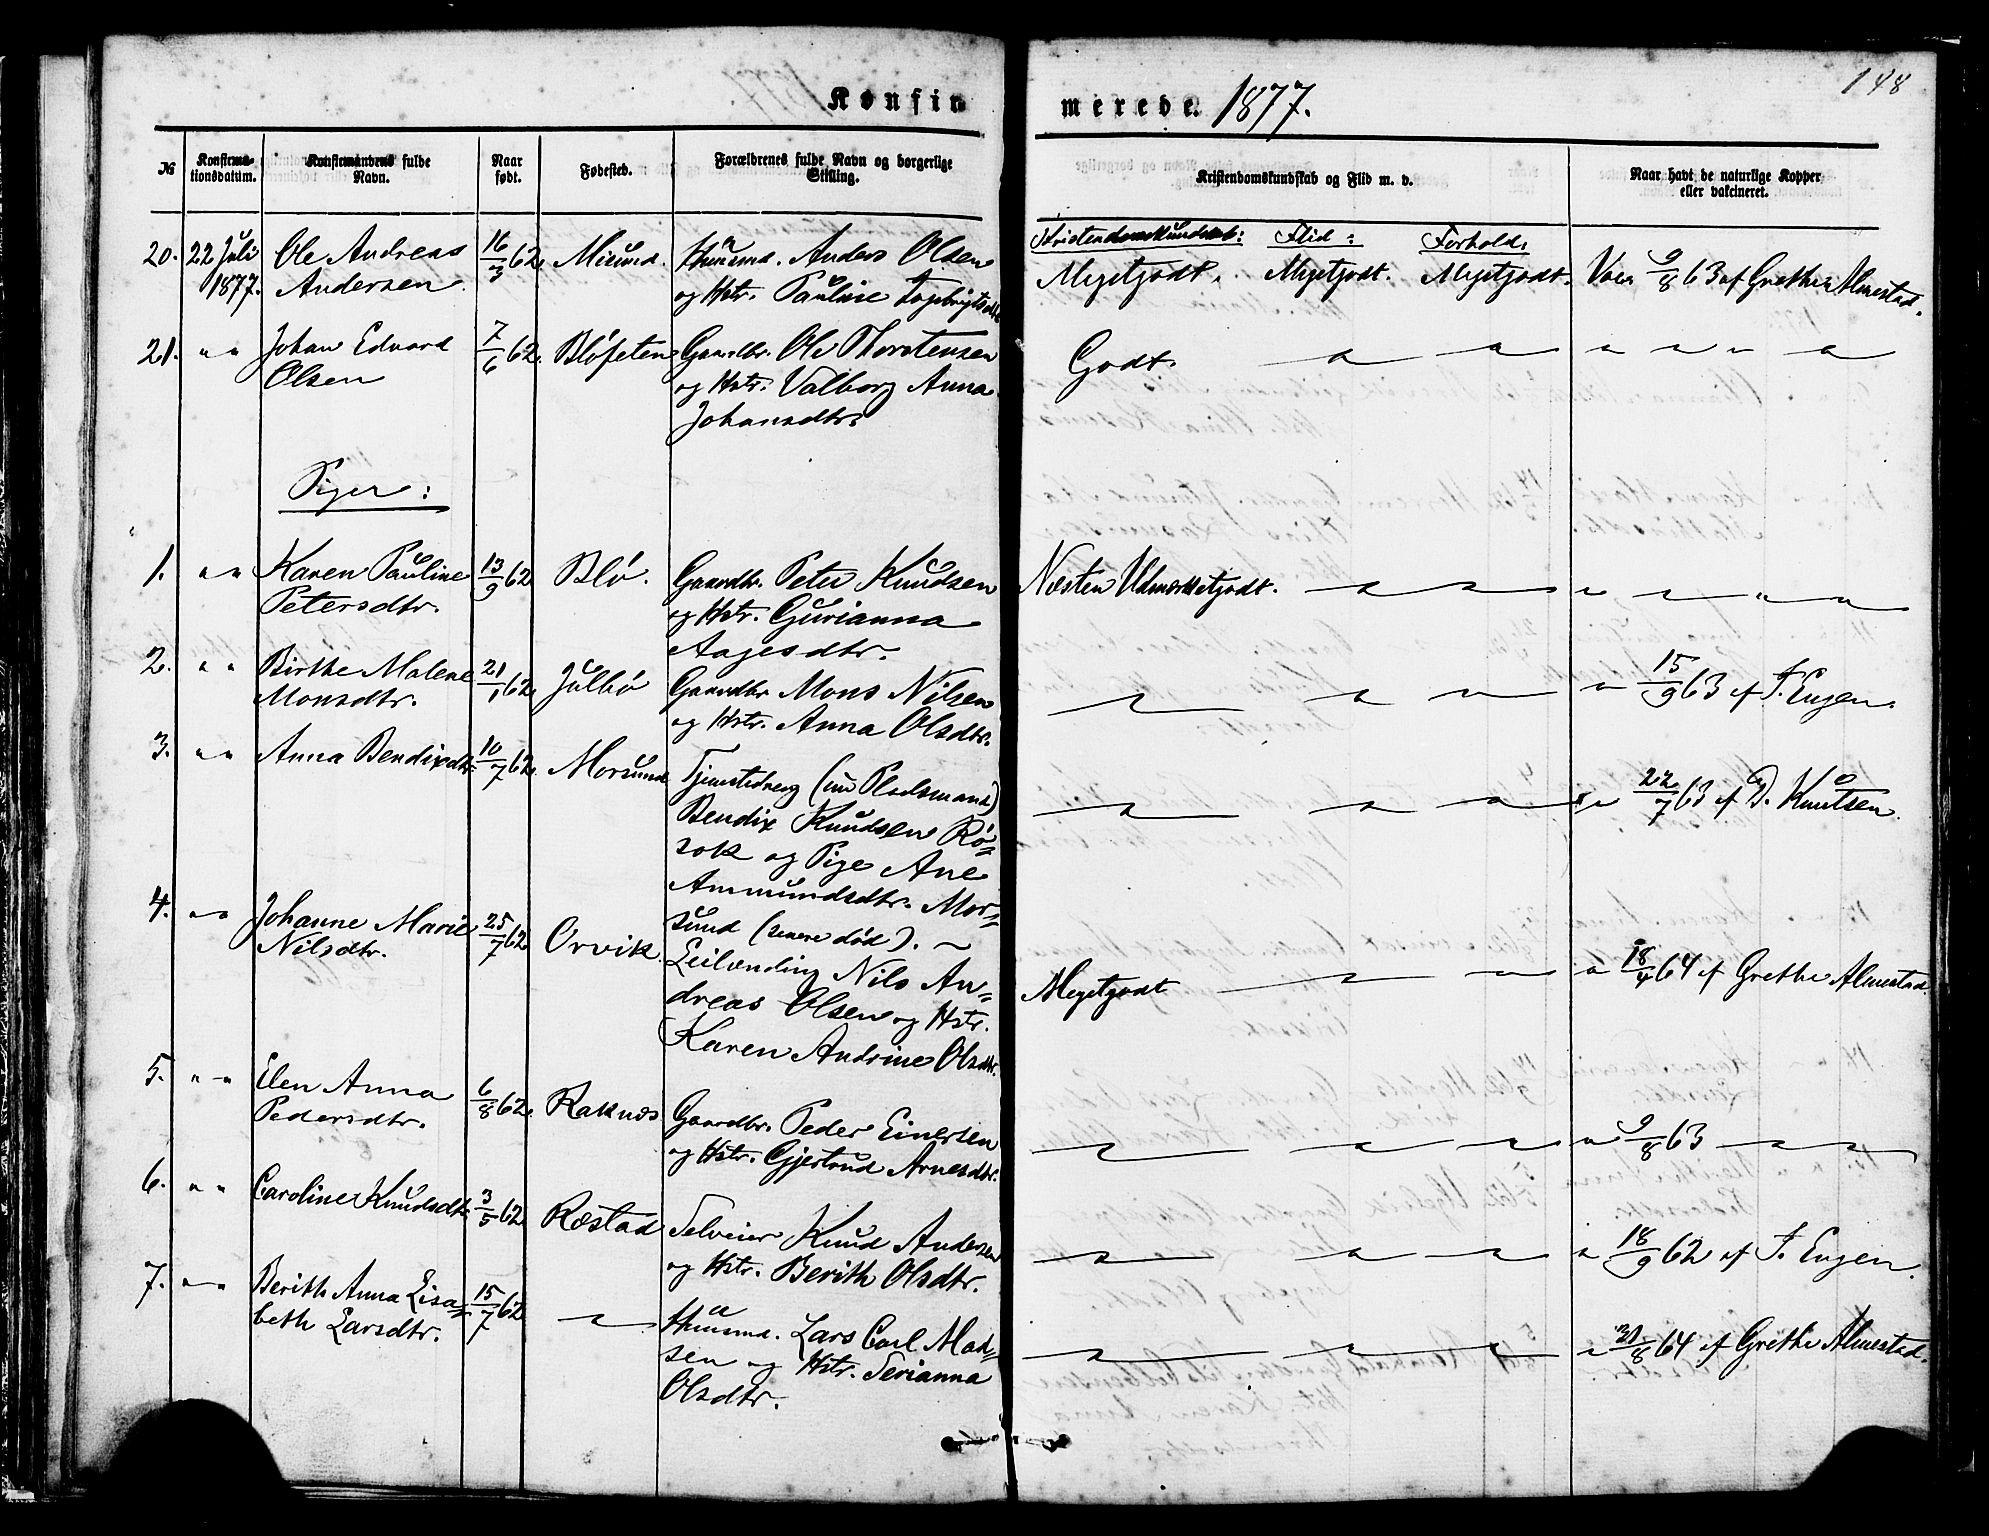 148
Konfirmerede. 1877.
№ Konfirmationsdatum. Konfirmandens fulde Navn. Naar født. Fødested. Forældrenes fulde Navn og borgerlige Stilling. Kristendomskundskab og Flid m. v. Naar havt de naturlige Kopper eller vakcineret.
Kristendomskundskab: Flid: Forhold:
20. 22 Juli Ole Andreas 16/3 62. Misund. Huusmd. Anders Olsen Megetgodt. Megetgodt. Megetgodt. Vacc. 9/8 63 af Grethe Almestad.
1877. Andersen. og Hstr. Pauline Ingebrigtsdtr.
21. " " Johan Edvard 7/6 62. Bløfeten Gaardbr. Ole Thorstensen Godt. " " " " " "
Olsen og Hstr. Valborg Anna
Johansdtr.
Piger:
1. " " Karen Pauline 13/9 62 Blø. Gaardbr. Peter Knudsen Næsten Udmærketgodt. " " " " " "
Petersdtr. og Hstr. Gurianna
Aagesdtr.
2. " " Birthe Malene 21/1 62. Julbø Gaardbr. Mons Nilsen " " " " 15/9 63 af F. Eugen.
Monsdtr. og Hstr. Anna Olsdtr.
3. " " Anna Bendixdtr. 10/7 62. Morsund Tjenestedreng (nu Pladsmand) " " " " 22/7 63 af D. Knutsen.
Bendix Knudsen Rø=
sok og Pige Ane
Ammundsdtr. Mor=
sund (senere død).
4. " " Johanne Marie 25/7 62. Orvik. Leilænding Nils An= Megetgodt " " " 18/4 64 af Grethe Almestad.
Nilsdtr. dreas Olsen og Hstr.
Karen Andrine Olsdtr.
5. " " Elen Anna 6/8 62. Raknæs Gaardbr. Peder Einersen " " " " 9/8 63 " "
Pedersdtr. og Hstr. Gjertrud Arnesdtr.
6. " " Caroline Knudsdtr. 3/5 62 Ræstad Selveier Knud Andersen " " " " 18/9 62 af F. Eugen.
og Hstr. Berith Olsdtr.
7. " " Berith Anna Lisa= 15/7 62 " Huusmd. Lars Carl Mad= " " " " 31/8 64 af Grethe Almestad.
beth Larsdtr. sen og Hstr. Serianna
Olsdtr.